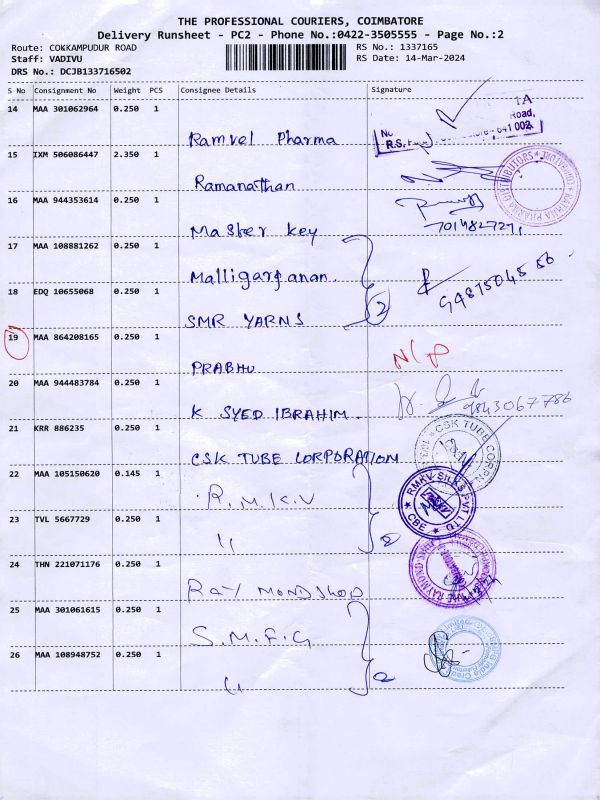 THE PROFESSIONAL COURIERS, COIMBATORE
Delivery Runsheet - PC2 - Phone No.:0422-3505555 - Page No.:2
Route: COKKAMPUDUR ROAD RS No.: 1337165
Staff: VADIVU RS Date: 14-Mar-2024
DRS No.: DCJB133716502
S No Consignment No Weight PCS Consignee Details Signature
14 MAA 301062964 0.250 1
Ramvel Pharma
No. Road,
R.S. 641 002
15 IXM 506086447 2.350 1
Ramanathan
16 MAA 944353614 0.250 1
Master Key
17 MAA 108881262 0.250 1
18 EDQ 10655068 0.250 1
SMR YARNS 2
19 MAA 864208165 0.250 1
PRABHU N/P
20 MAA 944483784 0.250 1
K SYED IBRAHIM. 9843067786
21 KRR 886235 0.250 1
CSK TUBE CORPORATION
CSK TUBE CORPN
22 MAA 105150620 0.145 1
R.M.K.V
RMKV SILKS PVT LTD
CBE
23 TVL 5667729 0.250 1
" 2
24 THN 221071176 0.250 1
RAYMOND SHOP
25 MAA 301061615 0.250 1
S.M.F.G
26 MAA 108948752 0.250 1
" 2